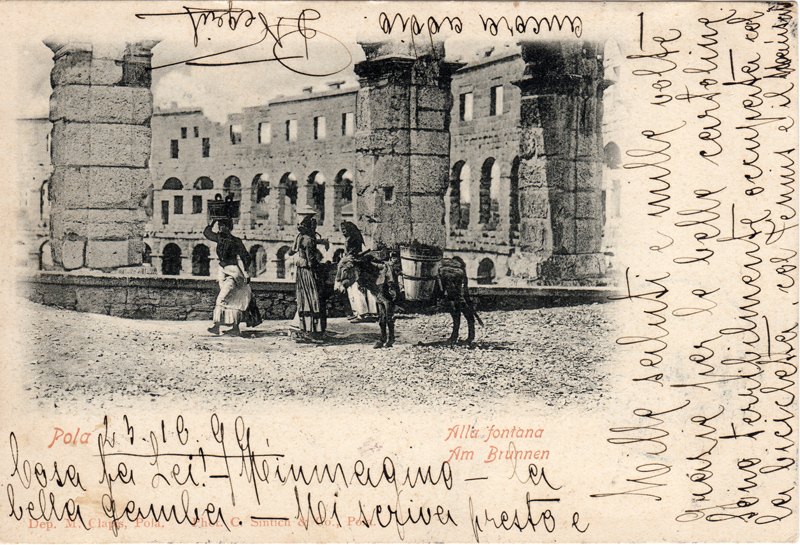 Pola
23.10.99
Alla fontana
Am Brunnen
Cosa fa Lei! - M'immagino - la
bella gamba. - Mi scriva presto e
Dep. M. Clapis, Pola. Phot. C. Sintich & Co., Pola.
Mille saluti e mille volte
grazie per le belle cartoline.
Sono terribilmente occupata col
la bicicletta, col tennis e il
ancora addio